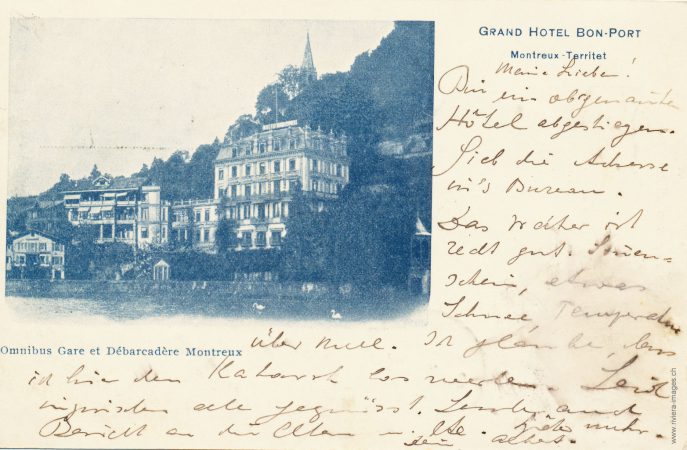 GRAND HOTEL BON-PORT
Montreux-Territet
Meine Lieben!
Bin im obgenannten
Hôtel abgestiegen.
Gieb die Adresse
in's Bureau.
Das Wetter ist
recht gut. Sonnen-
schein, etwas
Schnee Temperatur
Omnibus Gare et Débarcadère Montreux
über Null. Ich glaube, dass
ich hier den Katarrh los werde. Seid
inzwischen alle gegrüsst. Sende auch
Bericht an die Eltern
www.riviera-images.ch